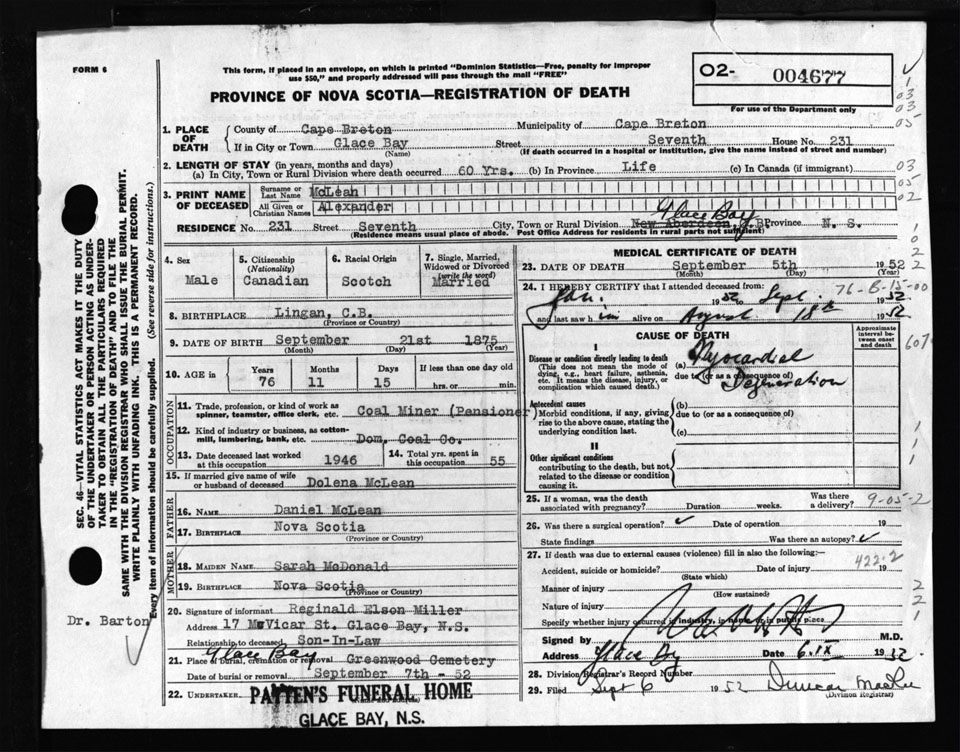 FORM 6
This form, if placed in an envelope, on which is printed "Dominion Statistics—Free, penalty for improper
use $50," and properly addressed will pass through the mail "FREE"
PROVINCE OF NOVA SCOTIA—REGISTRATION OF DEATH
O2- 004677
For use of the Department only
1. PLACE OF DEATH
County of Cape Breton Municipality of Cape Breton
If in City or Town Glace Bay Street Seventh House No. 231
(Name) (If death occurred in a hospital or institution, give the name instead of street and number)
2. LENGTH OF STAY (in years, months and days)
(a) In City, Town or Rural Division where death occurred 60 Yrs. (b) In Province Life (c) In Canada (if immigrant)
3. PRINT NAME OF DECEASED
Surname or Last Name McLean
All Given or Christian Names Alexander
Glace Bay
RESIDENCE No. 231 Street Seventh City, Town or Rural Division New Aberdeen, C.B. Province N. S.
(Residence means usual place of abode. Post Office Address for residents in rural parts not sufficient)
4. Sex Male
5. Citizenship (Nationality) Canadian
6. Racial Origin Scotch
7. Single, Married, Widowed or Divorced (write the word) Married
8. BIRTHPLACE Lingan, C.B.
(Province or Country)
9. DATE OF BIRTH September 21st 1875
(Month) (Day) (Year)
10. AGE in Years 76 Months 11 Days 15 If less than one day old hrs. or min.
OCCUPATION
11. Trade, profession, or kind of work as spinner, teamster, office clerk, etc. Coal Miner (Pensioner)
12. Kind of industry or business, as cotton-mill, lumbering, bank, etc. Dom. Coal Co.
13. Date deceased last worked at this occupation 1946
14. Total yrs. spent in this occupation 55
15. If married give name of wife or husband of deceased Dolena McLean
FATHER
16. NAME Daniel McLean
17. BIRTHPLACE Nova Scotia
(Province or Country)
MOTHER
18. MAIDEN NAME Sarah McDonald
19. BIRTHPLACE Nova Scotia
(Province or Country)
20. Signature of informant Reginald Elson Miller
Address 17 McVicar St. Glace Bay, N.S.
Relationship to deceased Son-In-Law
Glace Bay
21. Place of burial, cremation or removal Greenwood Cemetery
Date of burial or removal September 7th - 52
22. UNDERTAKER PATTEN'S FUNERAL HOME
(Name and address)
GLACE BAY, N.S.
MEDICAL CERTIFICATE OF DEATH
23. DATE OF DEATH September 5th 1952
(Month) (Day) (Year)
24. I HEREBY CERTIFY that I attended deceased from: 76-B-15-00
Jan. 1952 Sept. 1952
and last saw him alive on August 18th 1952
CAUSE OF DEATH
Approximate interval between onset and death
I
Disease or condition directly leading to death
(This does not mean the mode of dying, e.g., heart failure, asthenia, etc. It means the disease, injury, or complication which caused death.)
(a) Myocardial
due to (or as a consequence of)
Degeneration
Antecedent causes
Morbid conditions, if any, giving rise to the above cause, stating the underlying condition last.
(b)
due to (or as a consequence of)
(c)
II
Other significant conditions
contributing to the death, but not related to the disease or condition causing it.
25. If a woman, was the death associated with pregnancy? Duration weeks. Was there a delivery? 9-05-2
26. Was there a surgical operation? Date of operation 19
State findings Was there an autopsy?
27. If death was due to external causes (violence) fill in also the following:— 422-2
Accident, suicide or homicide? Date of injury 19
(State which)
Manner of injury
(How sustained)
Nature of injury
Specify whether injury occurred in industry, in home or in public place
Signed by M.D.
Address Glace Bay Date 6.IX 1952
28. Division Registrar's Record Number
29. Filed Sept 6 1952
(Division Registrar)
SEC. 46—VITAL STATISTICS ACT MAKES IT THE DUTY
OF THE UNDERTAKER OR PERSON ACTING AS UNDER-
TAKER TO OBTAIN ALL THE PARTICULARS REQUIRED
IN THE "REGISTRATION OF DEATH" AND TO FILE THE
SAME WITH THE DIVISION REGISTRAR WHO SHALL ISSUE THE BURIAL PERMIT.
WRITE PLAINLY WITH UNFADING INK. THIS IS A PERMANENT RECORD.
Every item of information should be carefully supplied. (See reverse side for instructions.)
Dr. Barton